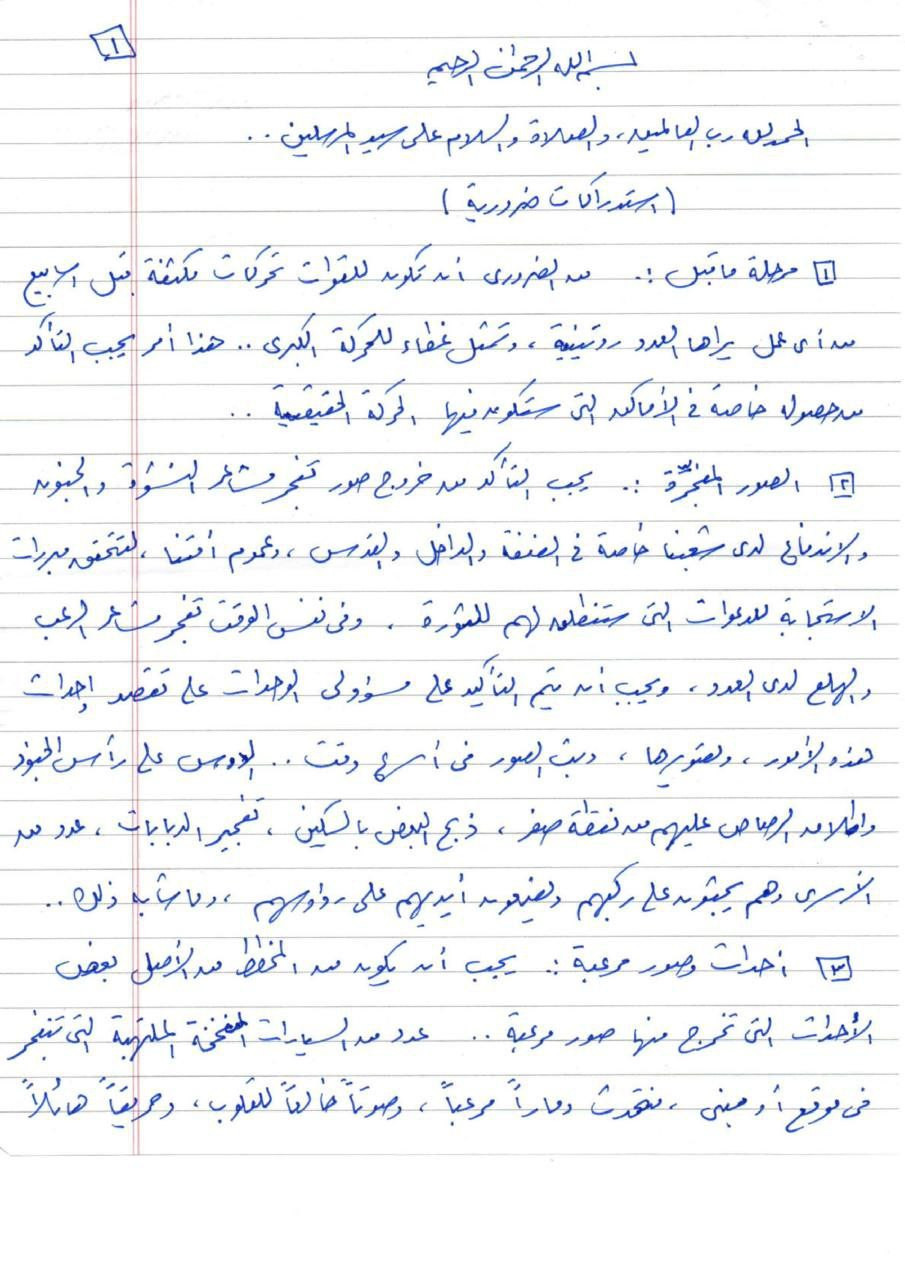 ١
بسم الله الرحمن الرحيم
الحمد لله رب العالمين، والصلاة والسلام على سيد المرسلين ..
(استدراكات ضرورية)
١ مرحلة ما قبل :. من الضروري أن تكون للقوات تحركات مكثفة قبل أسابيع
من أي عمل يراها العدو روتينية، وتمثل غطاء للحركة الكبرى .. هذا أمر يجب التأكد
من حصوله خاصة في الأماكن التي ستكون فيها الحركة الحقيقية ..
٢ الصور المفجّرة :. يجب التأكد من خروج صور تفجر مشاعر النشوة والجنون
والاندفاع لدى شعبنا خاصة في الضفة والداخل والقدس، وعموم أمتنا، لتتحقق مبررات
الاستجابة للدعوات التي ستنطلق لهم للثورة . وفي نفس الوقت تفجر مشاعر الرعب
والهلع لدى العدو، ويجب أن يتم التأكيد على مسؤولي الوحدات على تقصد إحداث
هذه الأمور، وتصويرها، وبث الصور في أسرع وقت .. الدوس على رأس الجنود
وإطلاق الرصاص عليهم من نقطة صفر، ذبح البعض بالسكين، تفجير الدبابات، عدد من
الأسرى وهم يجثون على ركبهم ويضعون أيديهم على رؤوسهم، وما شابه ذلك ..
٣ أحداث وصور مرعبة :. يجب أن يكون من المخطط من الأصل بعض
الأحداث التي تخرج منها صور مرعبة .. عدد من السيارات المفخخة الملتهبة التي تنفجر
في موقع أو مبنى، فتحدث دماراً مرعباً، وصوتاً خالعاً للقلوب، وحريقاً هائلاً